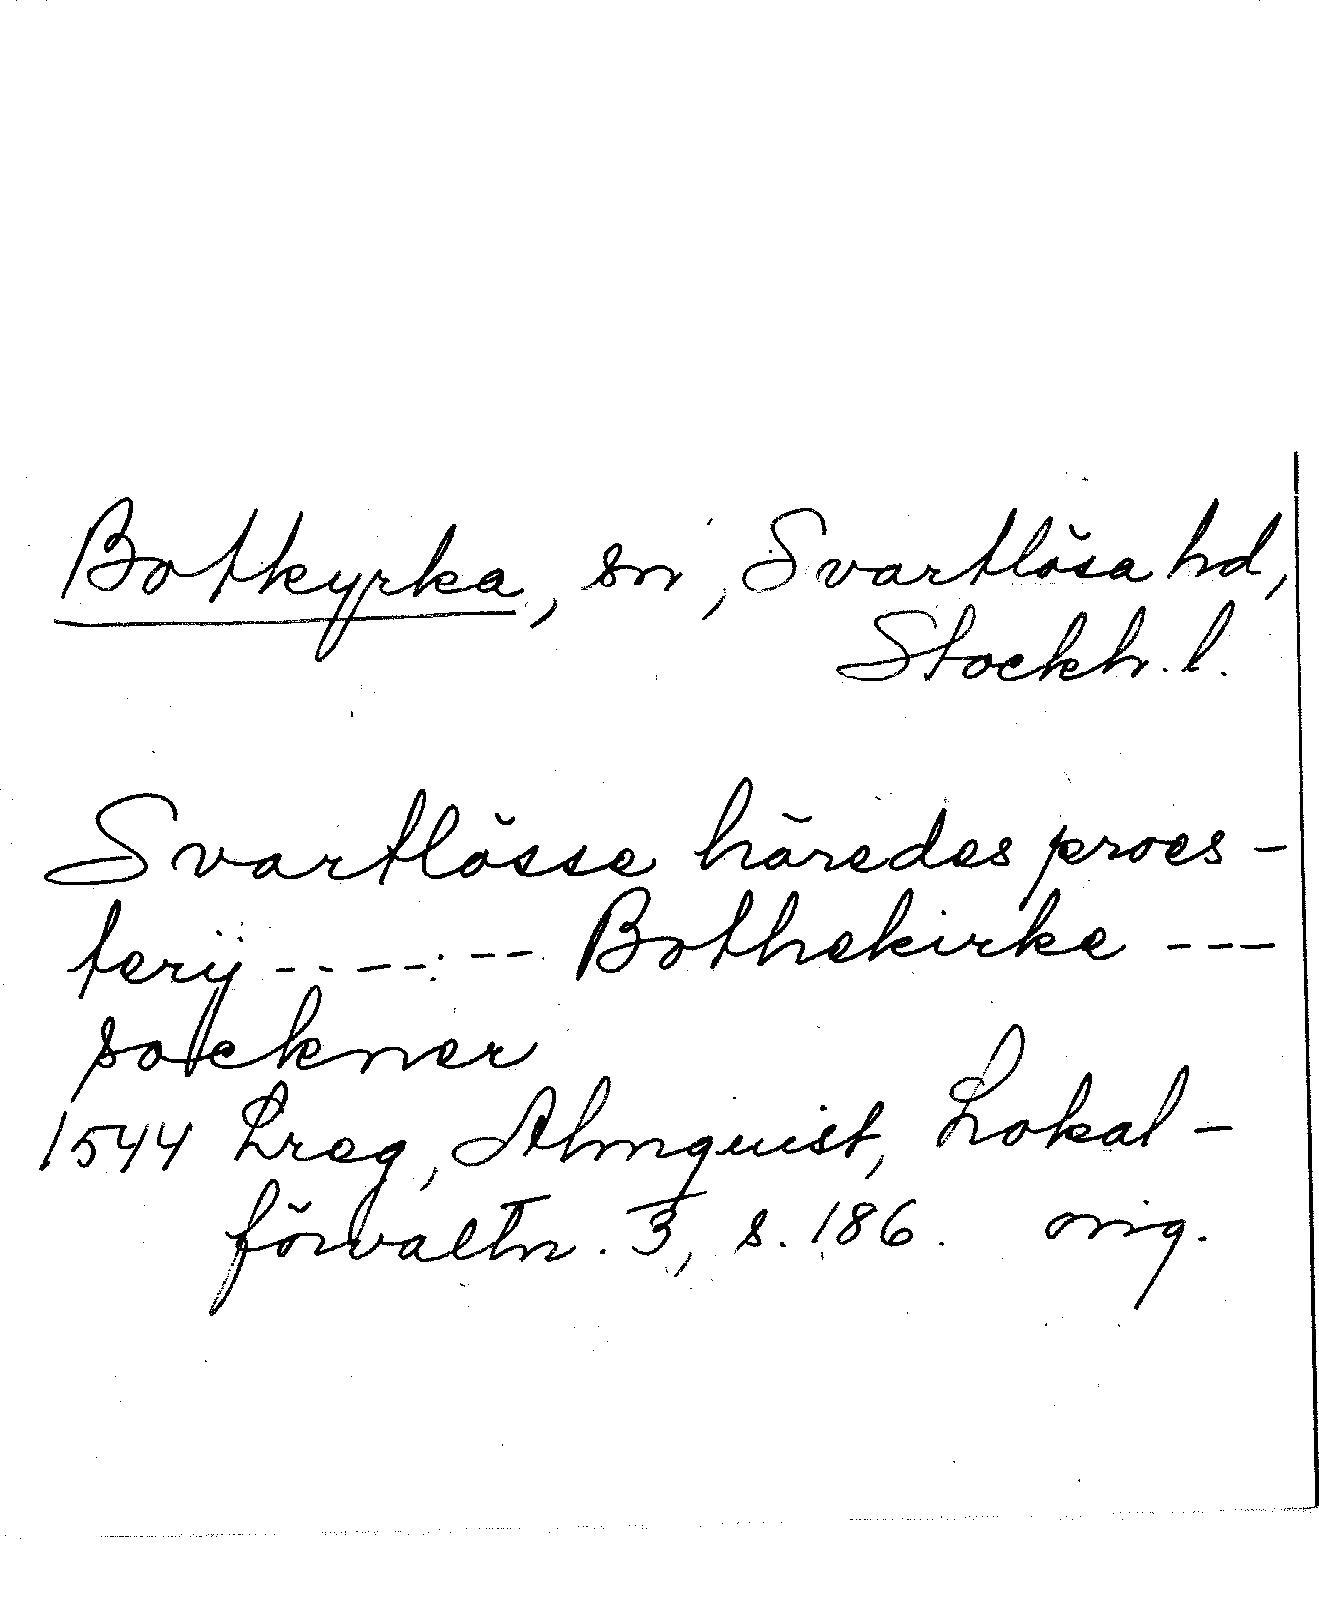 Botkyrka, sn, Svartlösa hd,
Stockh. l.
Svartlösse häredes proes-
terÿ - - - - - - - Bothekirke - - -
sockner
1544 Lreg, Almquist, Lokal-
förvaltn. 3, s. 186. orig.